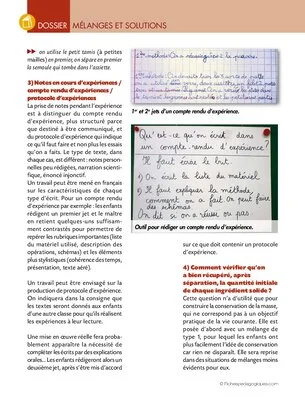 DOSSIER MÉLANGES ET SOLUTIONS
on utilise le petit tamis (à petites
mailles) en premier, on sépare en premier
la semoule qui tombe dans l'assiette.
3) Notes en cours d'expériences /
compte rendu d'expériences /
protocole d'expériences
La prise de notes pendant l'expérience
est à distinguer du compte rendu
d'expérience, plus structuré parce
que destiné à être communiqué, et
du protocole d'expérience qui indique
ce qu'il faut faire et non plus les essais
qu'on a faits. Le type de texte, dans
chaque cas, est différent : notes person-
nelles peu rédigées, narration scienti-
fique, énoncé injonctif.
Un travail peut être mené en français
sur les caractéristiques de chaque
type d'écrit. Pour un compte rendu
d'expérience par exemple : les enfants
rédigent un premier jet et le maître
en retient quelques uns suffisam-
ment contrastés pour permettre de
repérer les rubriques importantes (liste
du matériel utilisé, description des
opérations, schémas) et les éléments
plus stylistiques (cohérence des temps,
présentation, texte aéré).
Un travail peut être envisagé sur la
production de protocole d'expérience.
On indiquera dans la consigne que
les textes seront donnés aux enfants
d'une autre classe pour qu'ils réalisent
les expériences à leur lecture.
Une mise en œuvre réelle fera proba-
blement apparaître la nécessité de
compléter les écrits par des explications
orales... Les enfants rédigeront alors un
deuxième jet, après s'être mis d'accord
1er et 2e jets d'un compte rendu d'expérience.
Qu'est-ce qu'on écrit dans
un compte-rendu d'expérience ?
Il faut écrire le but.
1) On écrit la liste du matériel
2) Il faut expliquer la méthode,
comment on a fait. On peut faire
des schémas.
On dit si on a réussi ou pas
Outil pour rédiger un compte rendu d'expérience.
sur ce que doit contenir un protocole
d'expérience.
4) Comment vérifier qu'on
a bien récupéré, après
séparation, la quantité initiale
de chaque ingrédient solide ?
Cette question n'a d'utilité que pour
construire la conservation de la masse,
qui ne correspond pas à un objectif
pratique de la vie courante. Elle est
posée d'abord avec un mélange de
type 1, pour lequel les enfants ont
plus facilement l'idée de conservation
car rien ne disparaît. Elle sera reprise
dans des situations de mélanges moins
évidents pour eux.
© Fichespedagogiques.com